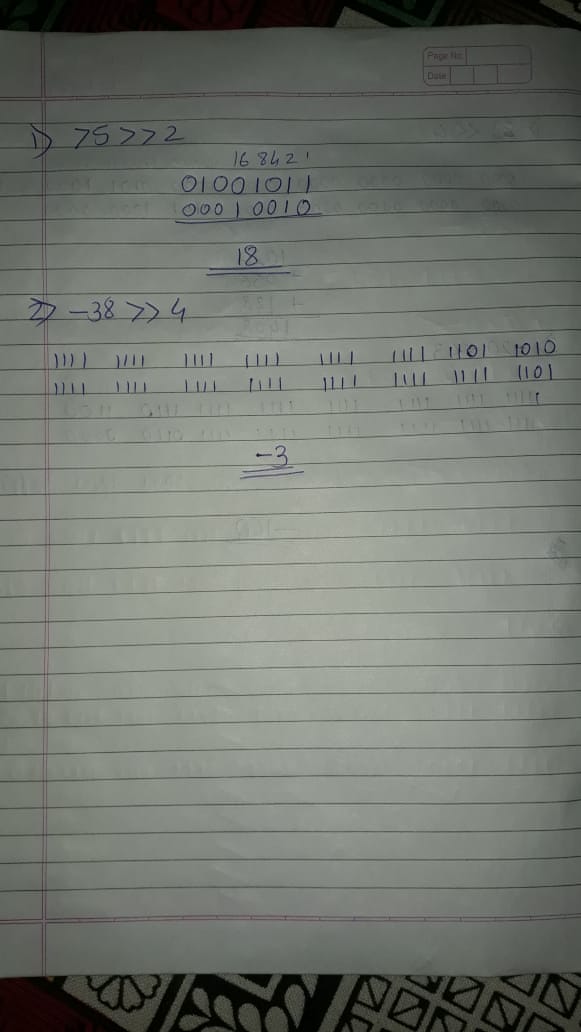 Page No.
Date
1) 75>>2
16 8 4 2 1
01001011
00010010
18
2) -38 >> 4
1111 1111 1111 1111 1111 1111 1101 1010
1111 1111 1111 1111 1111 1111 1111 1101
-3